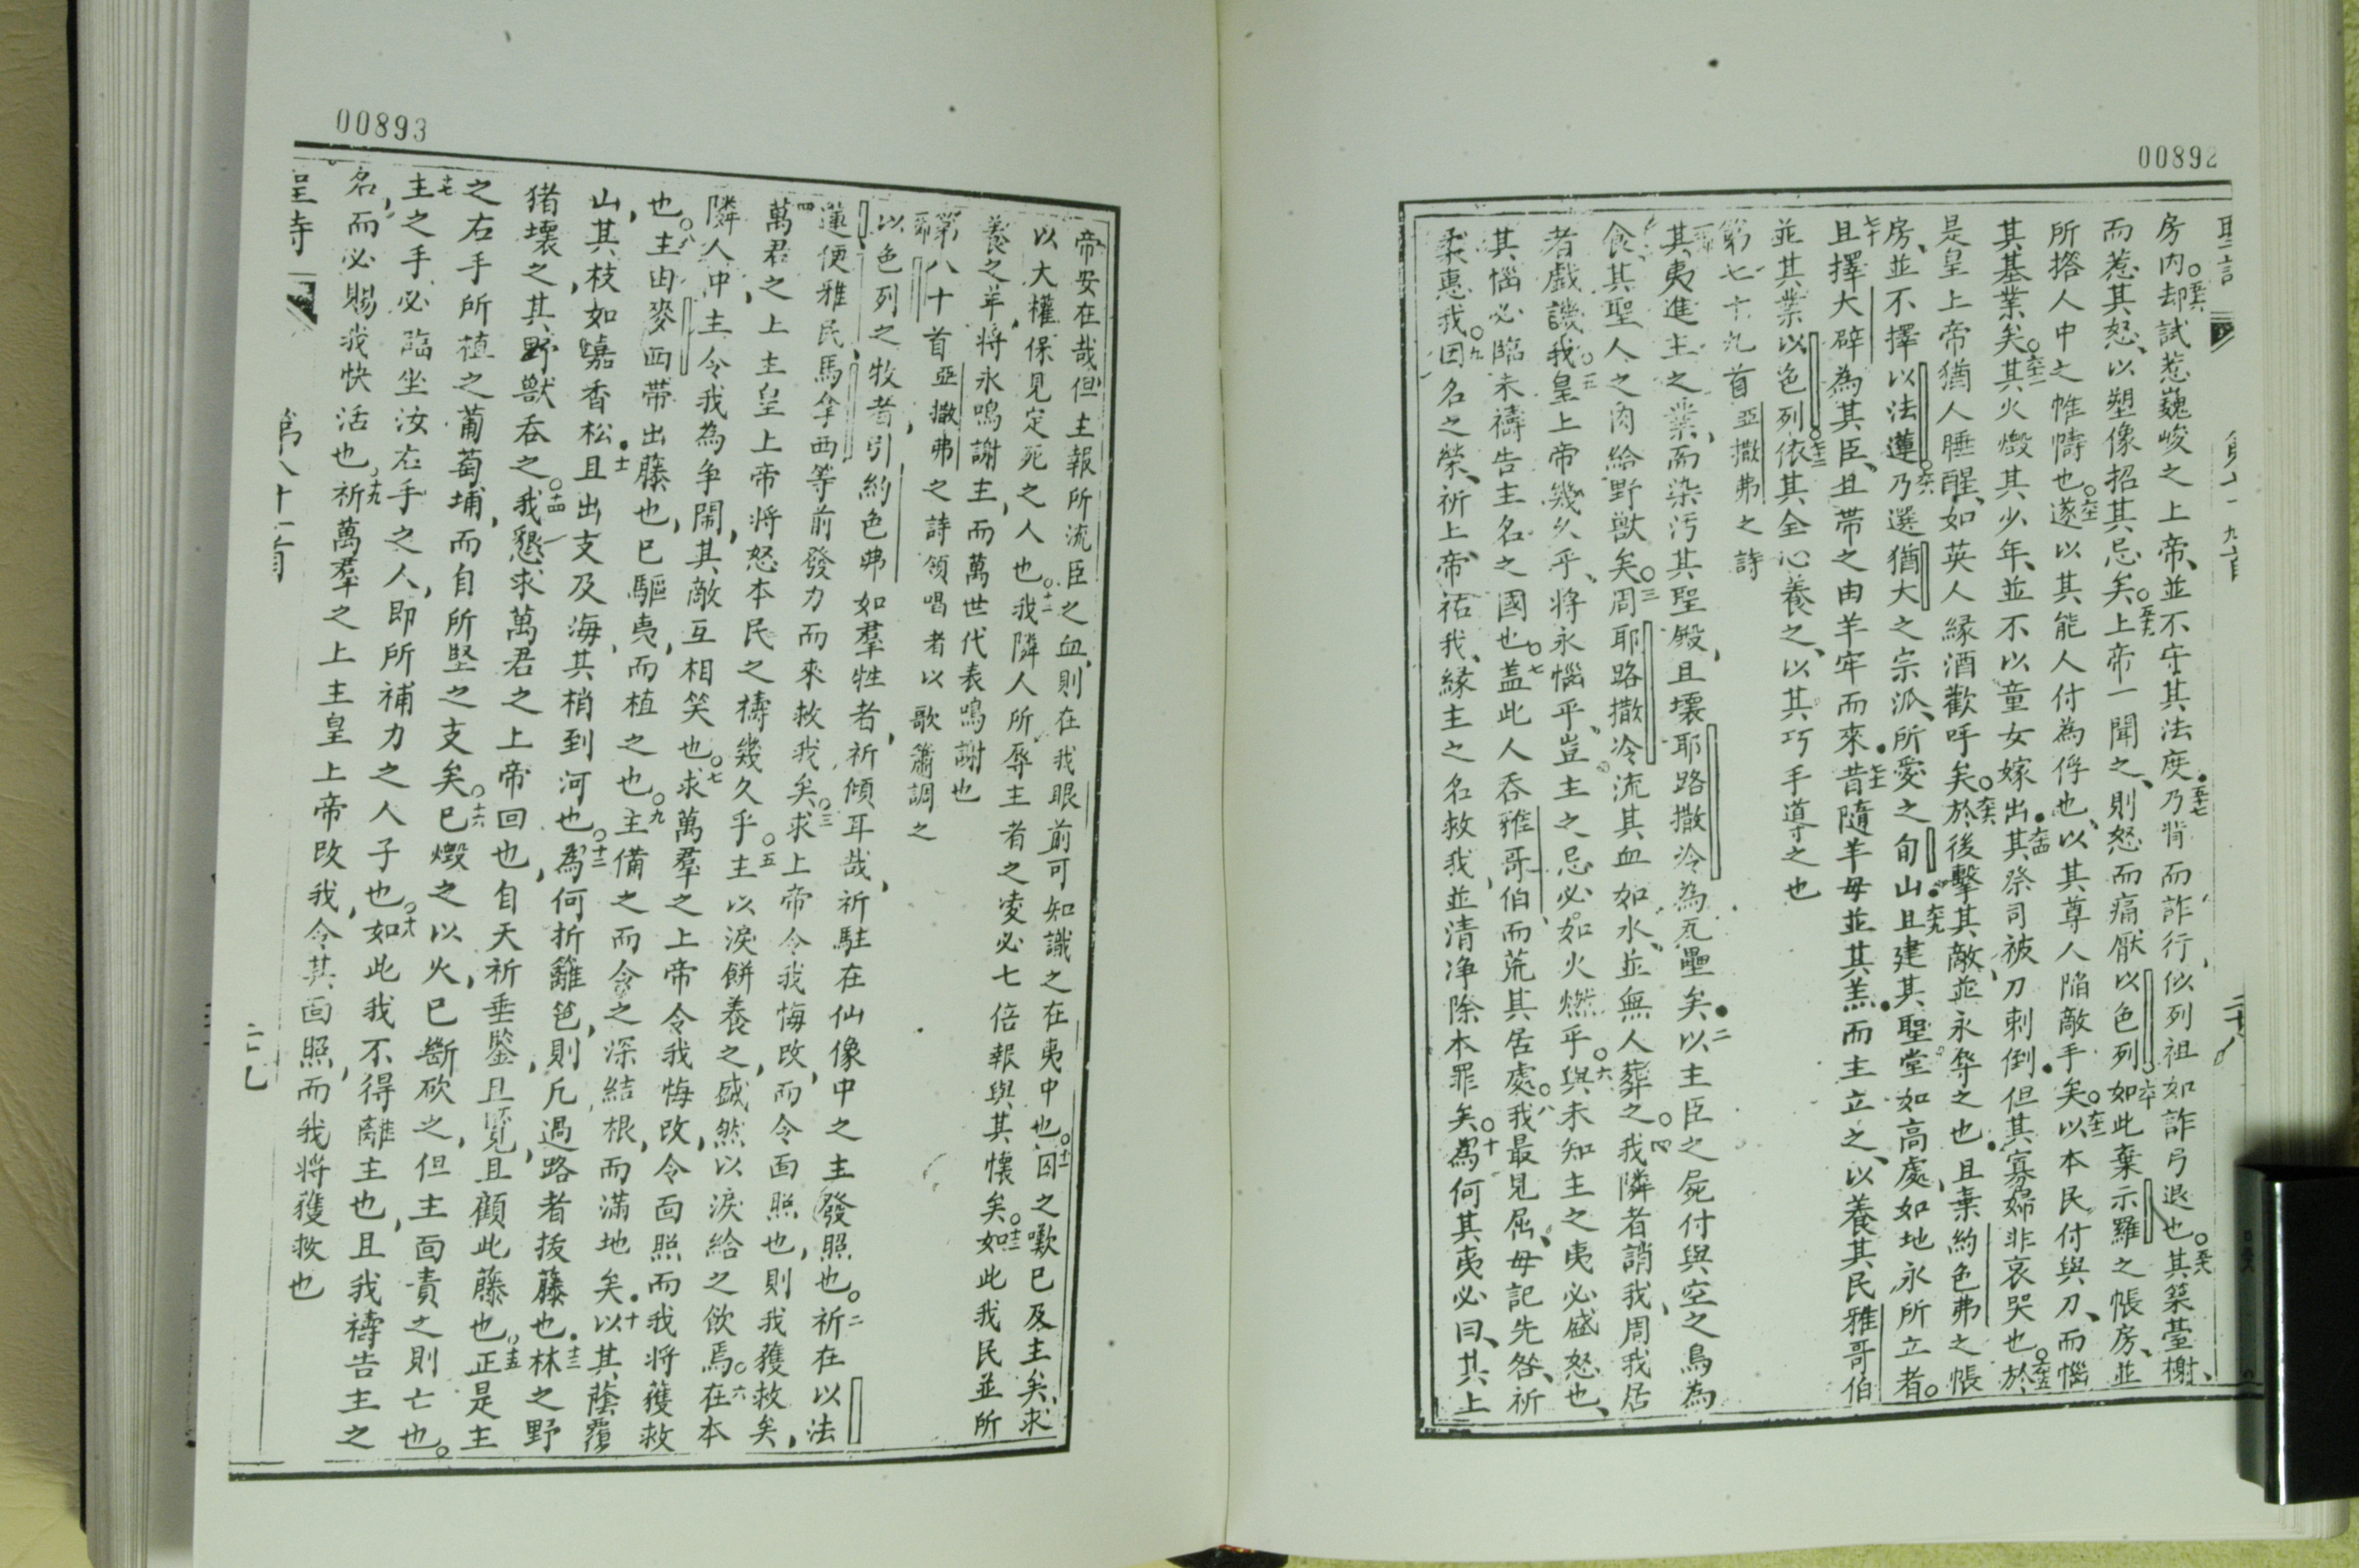 00892
房內却試惹巍峻之上帝、並不守其法度五十七乃背而詐行、似列祖如詐弓退也五十八其築臺榭、
而惹其怒、以塑像招其忌矣五十九上帝一聞之、則怒而痛厭以色列六十如此棄示羅之帳房、並
所撘人中之帷幬也六十一遂以其能人付為俘也、以其尊人陷敵手矣六十二以本民付與刀、而惱
其基業矣六十三其火燬其少年、並不以童女嫁出六十四其祭司被刀刺倒但其寡婦非哀哭也六十五於
是皇上帝猶人睡醒、如英人緣酒歡呼矣六十六於後擊其敵並永辱之也六十七且棄約色弗之帳
房、並不擇以法蓮六十八乃選猶大之宗派、所愛之旬山六十九且建其聖堂如高處、如地永所立者。
七十且擇大辟為其臣、且帶之由羊牢而來七十一昔隨羊母並其羔而主立之、以養其民雅哥伯
並其業以色列七十二依其全心養之、以其巧手道之也
第七十九首亞撒弗之詩
其夷進主之業、而染污其聖殿、且壞耶路撒冷為瓦壘矣二以主臣之屍付與空之鳥為
食、其聖人之肉給野獸矣三周耶路撒冷流其血如水、並無人葬之四我隣者誚我、周我居
者戲譏我五皇上帝幾久乎、將永惱乎、豈主之忌必如火燃乎六與未知主之夷必盛怒也、
其惱必臨未禱告主名之國也七蓋此人吞雅哥伯、而荒其居處八我最見屈、毋記先咎、祈
柔惠我九因名之榮、祈上帝、帝祐我、緣主之名救我、並清净除本罪矣十為何其夷必曰、其上
00893
帝安在哉、但主報所流臣之血、則在我眼前可知識之在夷中也十一囚之歎已及主矣、求
以大權保見定死之人也十二我隣人所辱主者之凌必七倍報與其懷矣十三如此我民並所
養之羊、將永鳴謝主、而萬世代表鳴謝也
第八十首亞撒弗之詩領唱者以歌簫調之
以色列之牧者、引約色弗如羣牲者、祈傾耳哉、祈駐在仙像中之主發照也。二祈在以法
蓮便雅民馬拿西等前發力而來救我矣三求上帝令我悔改、而令面照也、則我獲救矣、
四萬君之上主皇上帝將怒本民之禱幾久乎五主以淚餅養之、盛然以淚給之飲焉六在本
隣人中、主令我為爭鬧、其敵互相笑也七求萬羣之上帝令我悔改、令面照而我將獲救
也。八主由麥西帶出藤也、已驅夷、而植之也九主備之而令之深結根、而滿地矣十以其蔭覆
山、其枝如嘉香松十一且出支及海、其梢到河也十二為何折籬笆、則凡過路者拔藤也十三林之野
猪壞之、其野獸吞之十四我懇求萬君之上帝回也、自天祈垂鑒、且覓、且顧此藤也十五正是主
之右手所植之葡萄埔、而自所堅之支矣十六已燬之以火、已斷砍之、但主面責之則亡也。
十七主之手必臨坐汝右手之人、即所補力之人子也十八如此我不得離主也、且我禱告主之
名、而必賜我快活也十九祈萬羣之上主皇上帝改我、令其面照、而我將獲救也
第八十首